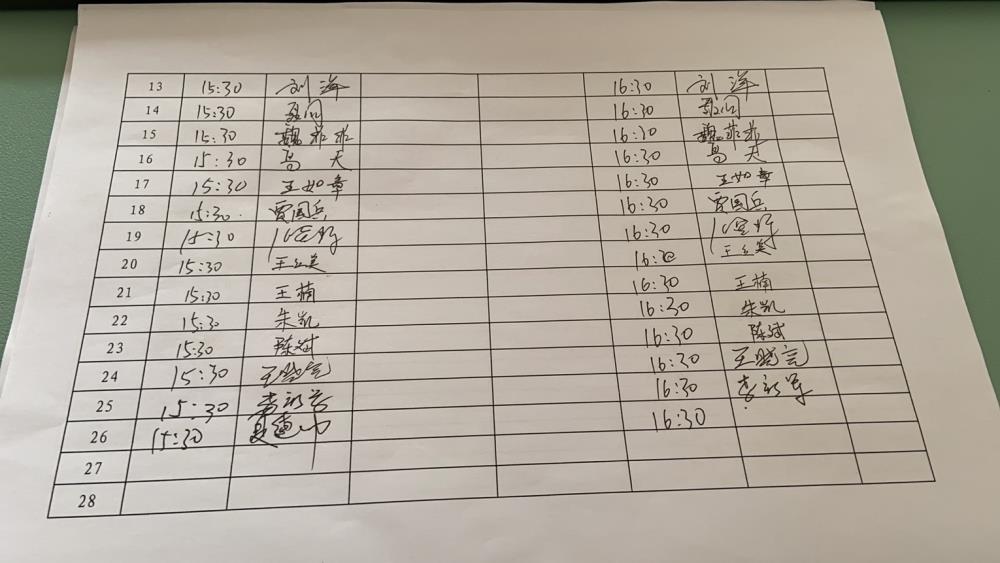 13 15:30 刘洋 16:30 刘洋
14 15:30 16:30
15 15:30 魏菲菲 16:30 魏菲菲
16 15:30 马天 16:30 马天
17 15:30 王如章 16:30 王如章
18 15:30 贾国兵 16:30 贾国兵
19 15:30 16:30
20 15:30 16:30
21 15:30 王楠 16:30 王楠
22 15:30 朱凯 16:30 朱凯
23 15:30 陈斌 16:30 陈斌
24 15:30 王晓亮 16:30 王晓亮
25 15:30 16:30
26 15:30 16:30
27
28